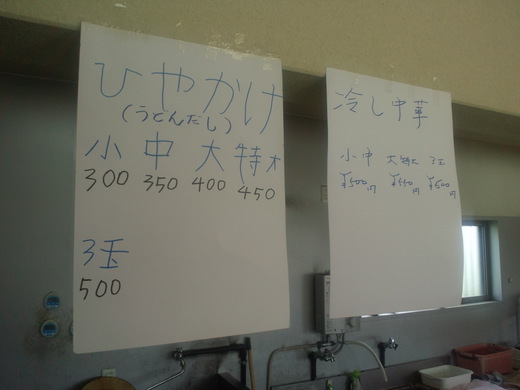 ひやかけ
(うどんだし)
小 中 大 特大
300 350 400 450
3玉
500
冷し中華
小 中 大 特大 3玉
¥500円 ¥550円 ¥600円